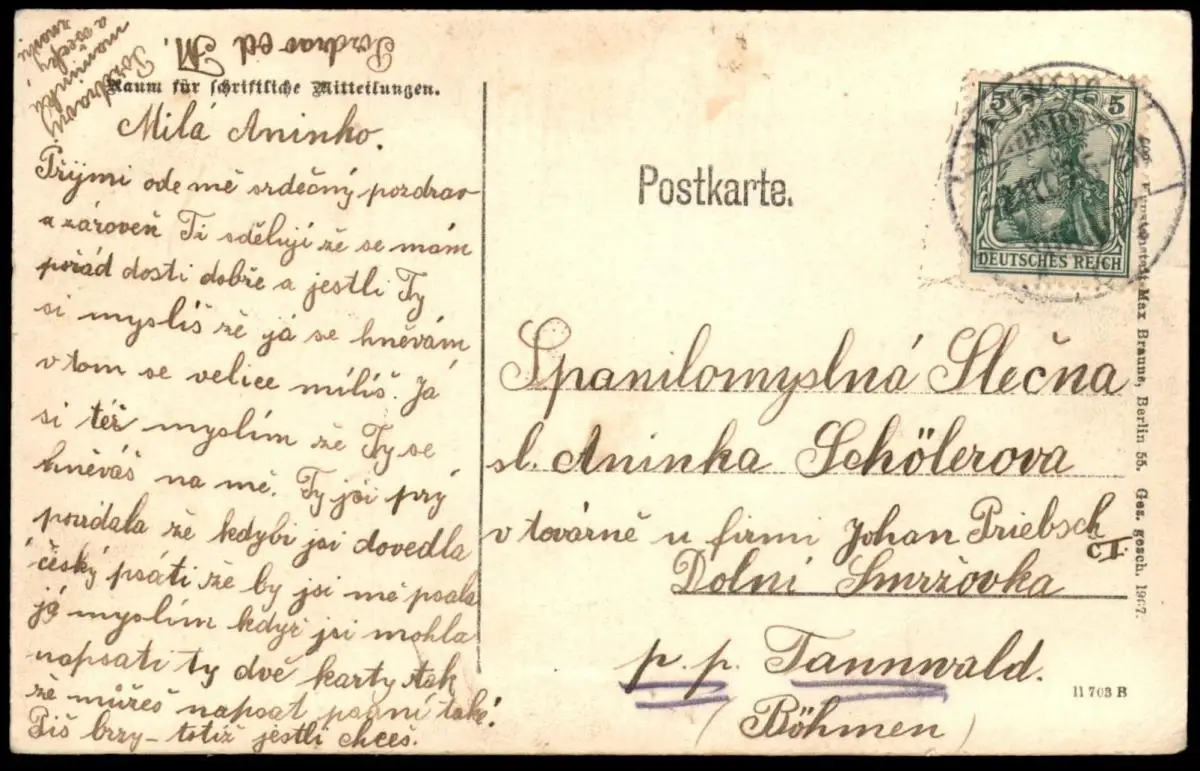 Pozdravy
maminku
a vsecky
Pozdrav od M.
Raum für schriftliche Mitteilungen.
Milá Aninko.
Přijmi ode mě srdečný pozdrav
a zároveň Ti sděluji že se mám
pořád dosti dobře a jestli Ty
si myslíš že já se hněvám
v tom se velice mílíš. Já
si též myslím že Ty se
hněváš na mě. Ty jsi prý
povídala že kdybi jsi dovedla
český psáti že by jsi mě psala
já myslím když jsi mohla
napsati ty dvě karty tak
že můžeš napsat psaní také!
Piš brzy – totiž jestli chceš.
Postkarte.
5 5
DEUTSCHES REICH
Spanilomyslná Slečna
sl. Aninka Schölerova
v továrně u firmi Johan Priebsch
Dolní Smržovka
p. p. Tannwald.
(Böhmen)
Max Braune, Berlin 55. Ges. gesch. 1907.
11703 B